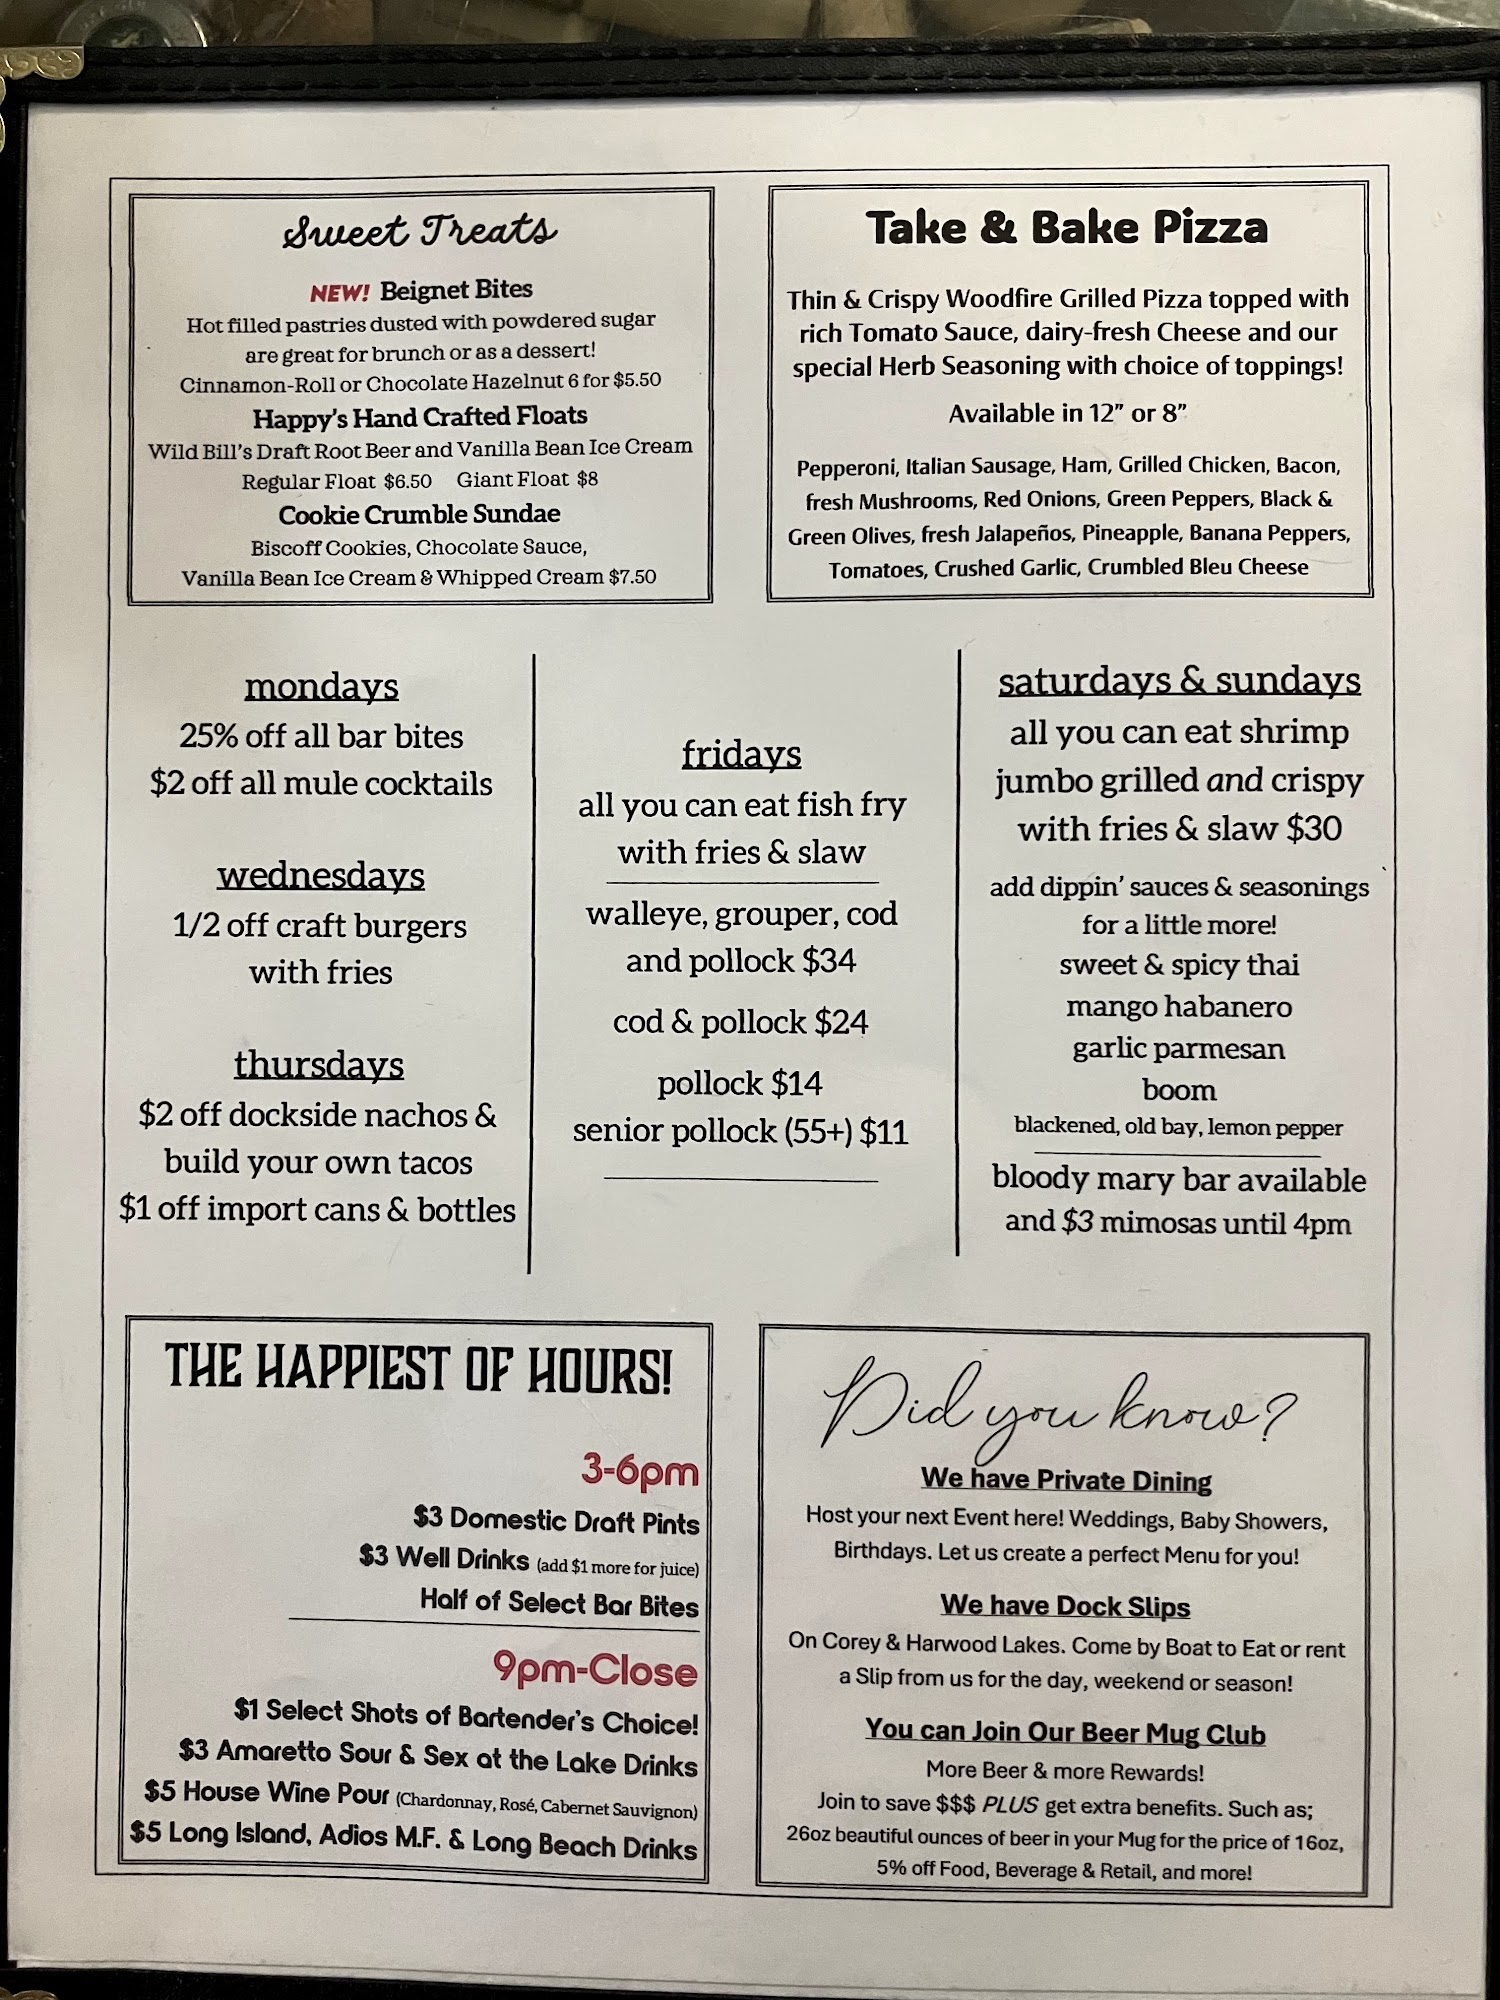 Sweet Treats
NEW! Beignet Bites
Hot filled pastries dusted with powdered sugar
are great for brunch or as a dessert!
Cinnamon-Roll or Chocolate Hazelnut 6 for $5.50
Happy's Hand Crafted Floats
Wild Bill's Draft Root Beer and Vanilla Bean Ice Cream
Regular Float $6.50 Giant Float $8
Cookie Crumble Sundae
Biscoff Cookies, Chocolate Sauce,
Vanilla Bean Ice Cream & Whipped Cream $7.50
Take & Bake Pizza
Thin & Crispy Woodfire Grilled Pizza topped with
rich Tomato Sauce, dairy-fresh Cheese and our
special Herb Seasoning with choice of toppings!
Available in 12" or 8"
Pepperoni, Italian Sausage, Ham, Grilled Chicken, Bacon,
fresh Mushrooms, Red Onions, Green Peppers, Black &
Green Olives, fresh Jalapeños, Pineapple, Banana Peppers,
Tomatoes, Crushed Garlic, Crumbled Bleu Cheese
mondays
25% off all bar bites
$2 off all mule cocktails
wednesdays
1/2 off craft burgers
with fries
thursdays
$2 off dockside nachos &
build your own tacos
$1 off import cans & bottles
fridays
all you can eat fish fry
with fries & slaw
walleye, grouper, cod
and pollock $34
cod & pollock $24
pollock $14
senior pollock (55+) $11
saturdays & sundays
all you can eat shrimp
jumbo grilled and crispy
with fries & slaw $30
add dippin' sauces & seasonings
for a little more!
sweet & spicy thai
mango habanero
garlic parmesan
boom
blackened, old bay, lemon pepper
bloody mary bar available
and $3 mimosas until 4pm
THE HAPPIEST OF HOURS!
3-6pm
$3 Domestic Draft Pints
$3 Well Drinks (add $1 more for juice)
Half of Select Bar Bites
9pm-Close
$1 Select Shots of Bartender's Choice!
$3 Amaretto Sour & Sex at the Lake Drinks
$5 House Wine Pour (Chardonnay, Rosé, Cabernet Sauvignon)
$5 Long Island, Adios M.F. & Long Beach Drinks
Did you know?
We have Private Dining
Host your next Event here! Weddings, Baby Showers,
Birthdays. Let us create a perfect Menu for you!
We have Dock Slips
On Corey & Harwood Lakes. Come by Boat to Eat or rent
a Slip from us for the day, weekend or season!
You can Join Our Beer Mug Club
More Beer & more Rewards!
Join to save $$$ PLUS get extra benefits. Such as;
26oz beautiful ounces of beer in your Mug for the price of 16oz,
5% off Food, Beverage & Retail, and more!